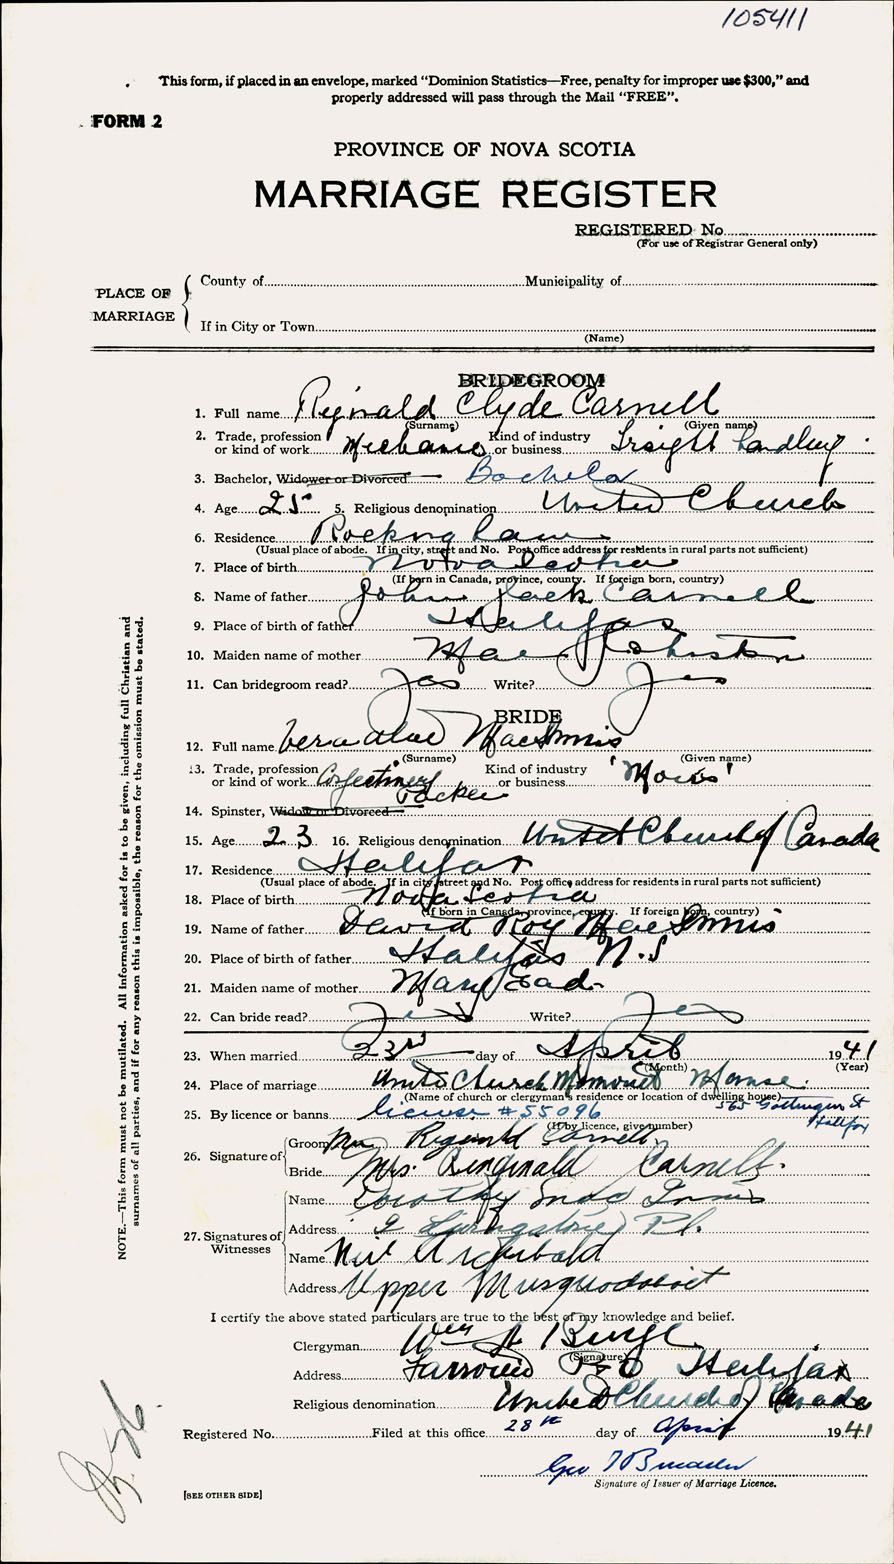 105411
This form, if placed in an envelope, marked “Dominion Statistics—Free, penalty for improper use $300,” and
properly addressed will pass through the Mail “FREE”.
FORM 2
PROVINCE OF NOVA SCOTIA
MARRIAGE REGISTER
REGISTERED No
(For use of Registrar General only)
PLACE OF MARRIAGE
County of Municipality of
If in City or Town
(Name)
BRIDEGROOM
1. Full name Reginald Clyde Carnell
(Surname) (Given name)
2. Trade, profession or kind of work Mechanic Kind of industry or business Freight handling
3. Bachelor, Widower or Divorced Bachelor
4. Age 25 5. Religious denomination United Church
6. Residence Rockingham
(Usual place of abode. If in city, street and No. Post office address for residents in rural parts not sufficient)
7. Place of birth Nova Scotia
(If born in Canada, province, county. If foreign born, country)
8. Name of father John Jack Carnell
9. Place of birth of father Halifax
10. Maiden name of mother Mae Johnston
11. Can bridegroom read? Yes Write? Yes
BRIDE
12. Full name Vera MacInnis
(Surname) (Given name)
13. Trade, profession or kind of work Confectionery Packer Kind of industry or business 'Moirs'
14. Spinster, Widow or Divorced
15. Age 23 16. Religious denomination United Church of Canada
17. Residence Halifax
(Usual place of abode. If in city, street and No. Post office address for residents in rural parts not sufficient)
18. Place of birth Nova Scotia
(If born in Canada, province, county. If foreign born, country)
19. Name of father David Roy MacInnis
20. Place of birth of father Halifax N.S
21. Maiden name of mother Mary
22. Can bride read? Yes Write? Yes
23. When married 23rd day of April 1941
(Month) (Year)
24. Place of marriage United Church Manse
(Name of church or clergyman's residence or location of dwelling house)
565 Gottingen St
Halifax
25. By licence or banns license #55096
(If by licence, give number)
26. Signature of
Groom Mr Reginald Carnell
Bride Mrs. Reginald Carnell.
27. Signatures of Witnesses
Name Dorothy Innis
Address 9 Livingstone Pl.
Name Archibald
Address Upper Musquodoboit
I certify the above stated particulars are true to the best of my knowledge and belief.
Clergyman Wm A Burge
(Signature)
Address P O Halifax
Religious denomination United Church of Canada
Registered No. Filed at this office 28th day of April 1941
Geo
Signature of Issuer of Marriage Licence.
[SEE OTHER SIDE]
NOTE.—This form must not be mutilated. All Information asked for is to be given, including full Christian and
surnames of all parties, and if for any reason this is impossible, the reason for the omission must be stated.